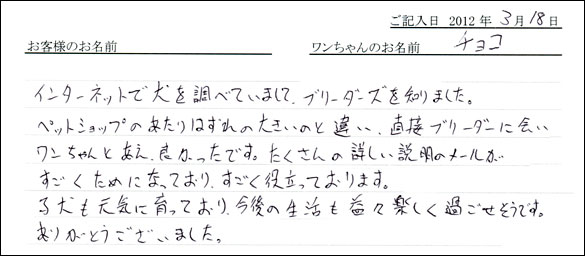 ご記入日 2012 年 3月 18日
お客様のお名前 ワンちゃんのお名前 チョコ
インターネットで犬を調べていまして、ブリーダーズを知りました。
ペットショップのあたりはずれの大きいのと違い、直接ブリーダーに会い
ワンちゃんとあえ、良かったです。たくさんの詳しい説明のメールが
すごくためになっており、すごく役立っております。
子犬も元気に育っており、今後の生活も益々楽しく過ごせそうです。
ありがとうございました。